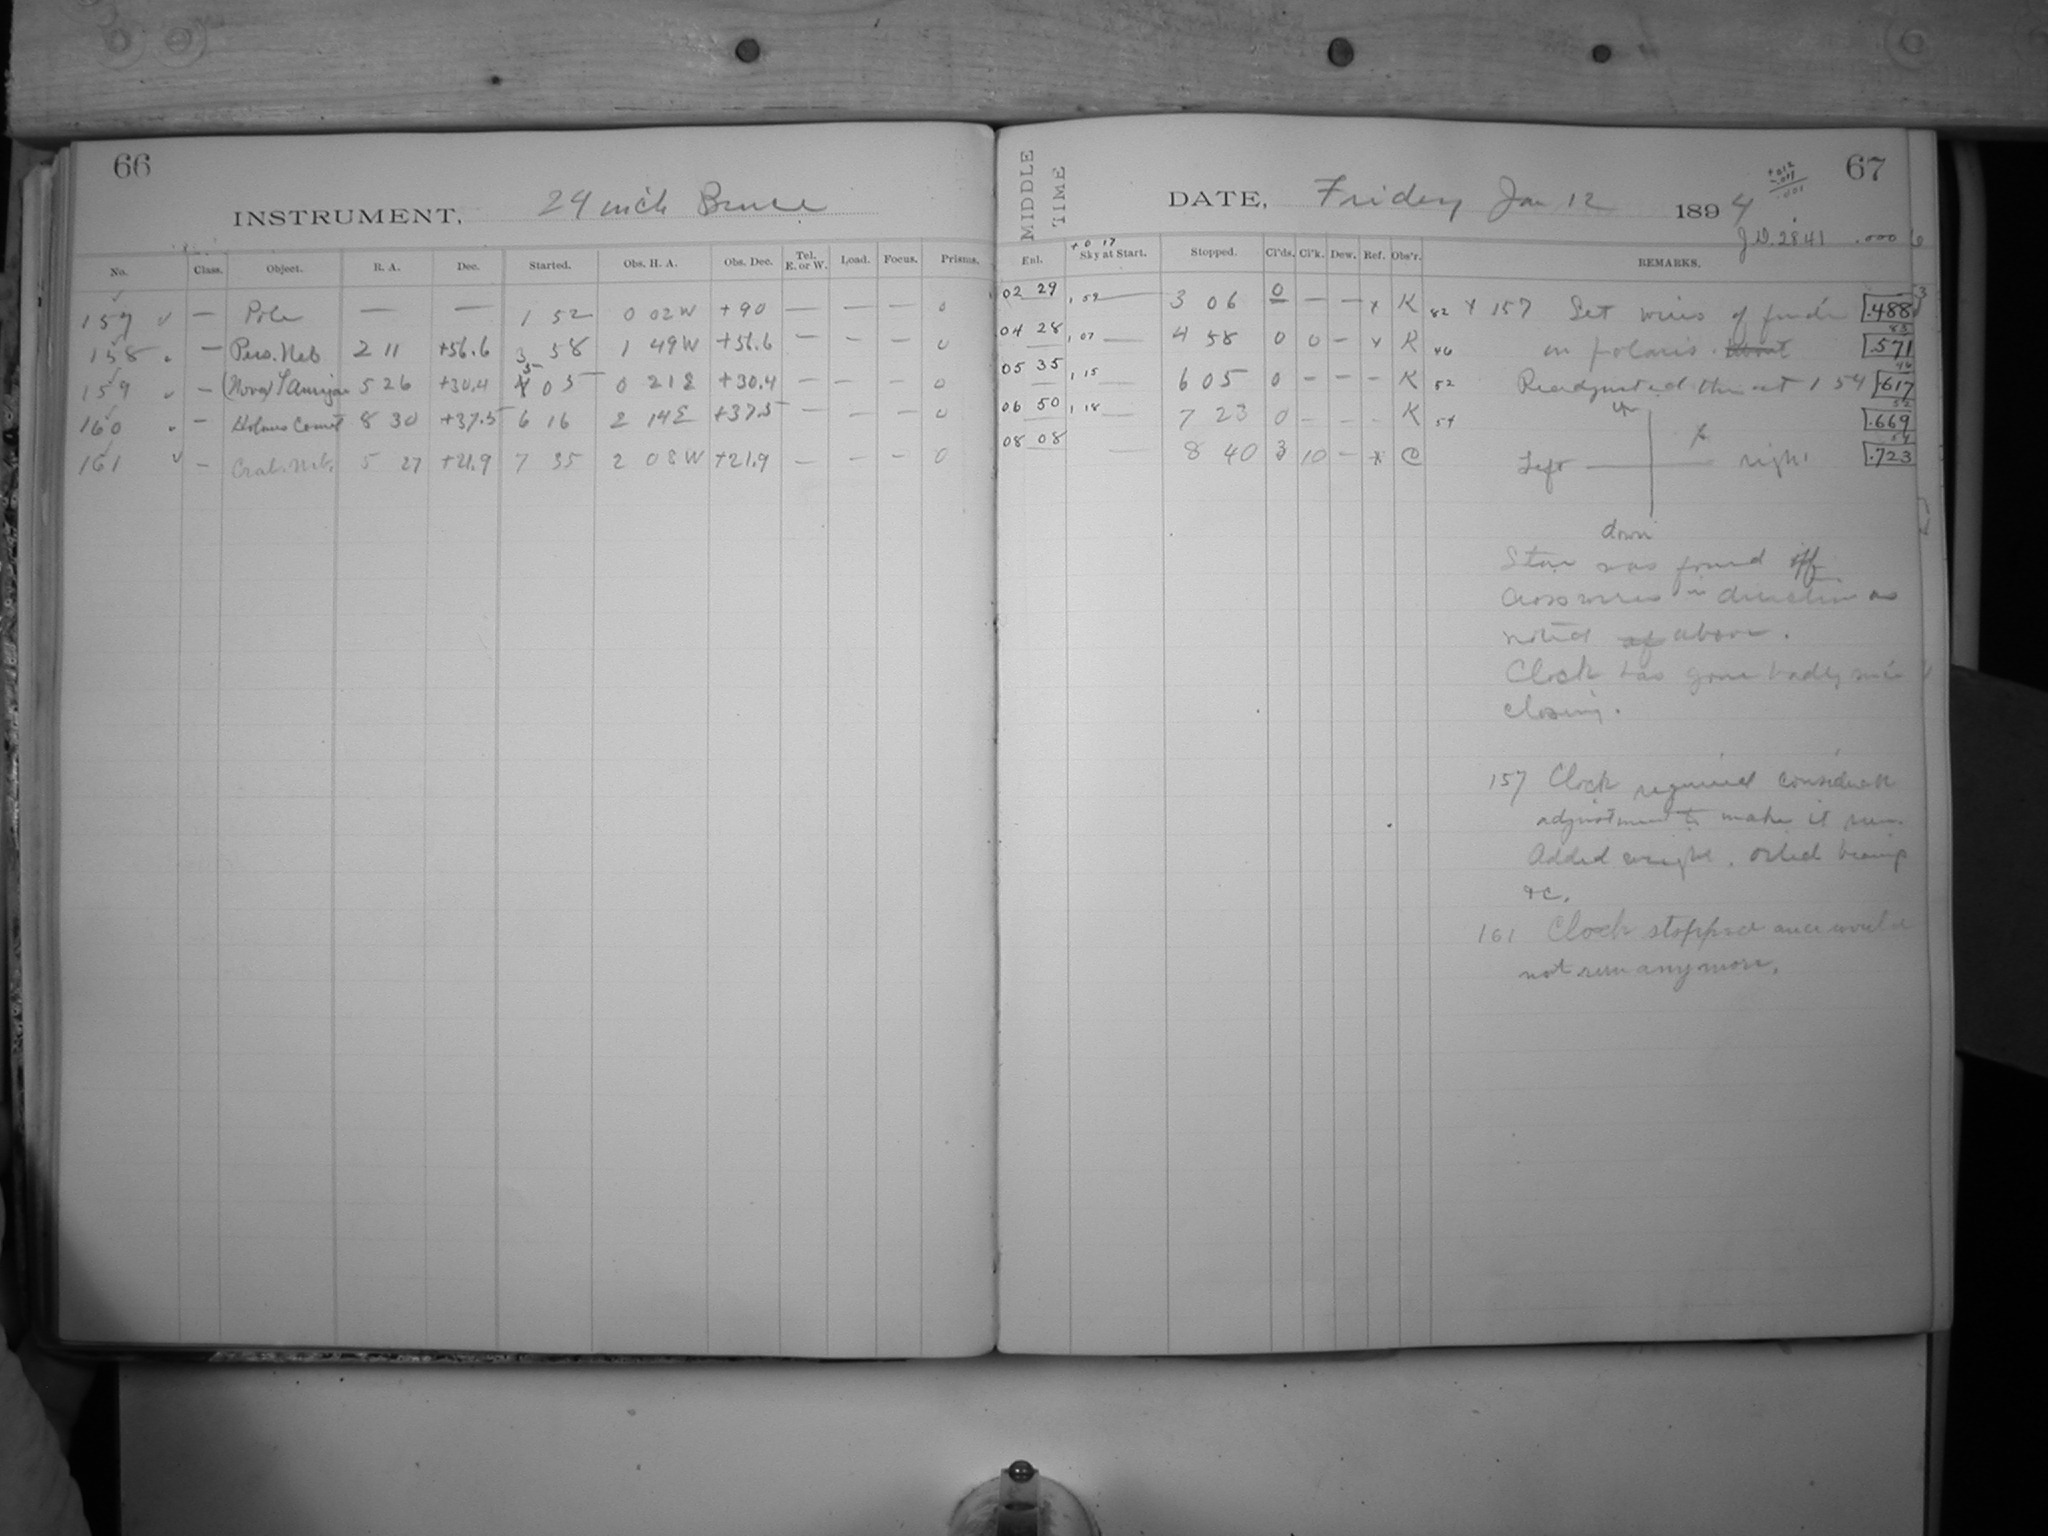 66
INSTRUMENT, 24 inch Bruce
No. Class. Object. R. A. Dec. Started. Obs. H. A. Obs. Dec. Tel. E. or W. Load. Focus. Prisms.
157 — Pole — — 1 52 0 02 W +90 — — — 0
158 — Pers. Neb 2 11 +56.6 3 58 1 49 W +56.6 — — — 0
159 — (Nova) T Aurigae 5 26 +30.4 5 05 0 21 E +30.4 — — — 0
160 — Holmes Comet 8 30 +37.5 6 16 2 14 E +37.5 — — — 0
161 — Crab. Neb. 5 27 +21.9 7 35 2 08 W +21.9 — — — 0
67
MIDDLE TIME
DATE, Friday Jan 12 1894
+.012
-.011
.001
J.D. 2841 .000
+0 17
Enl. Sky at Start. Stopped. Cl'ds. Cl'k. Dew. Ref. Obs'r. REMARKS.
02 29 1, 59 — 3 06 0 — — x K 82
04 28 1, 07 — 4 58 0 0 — x K 46
05 35 1, 15 6 05 0 — — — K 52
06 50 1, 18 — 7 23 0 — — — K 54
08 08 — 8 40 3 10 — x C
x 157 Set wires of finder .488
on polaris. about .571
Readjusted them at 1 54 .617
up .669
x
Left right .723
down
Star was found off
Cross wires in direction as
noted of above.
Clock has gone badly since
closing.
157 Clock required considerable
adjustment to make it run.
Added weight, oiled bearings
&c.
161 Clock stopped and would
not run any more.